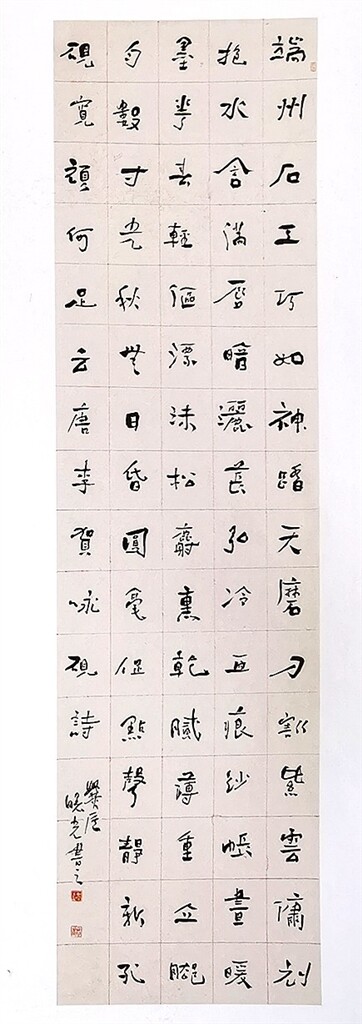 端州石工巧如神踏天磨刀割紫雲傭刓
抱水含滿唇暗灑萇弘冷血痕紗帳晝暖
墨花春輕漚漂沫松麝熏乾膩薄重立腳
勻數寸光秋無日昏圓毫促點聲靜新孔
硯寬頑何足云唐李賀咏硯詩
曉光書之